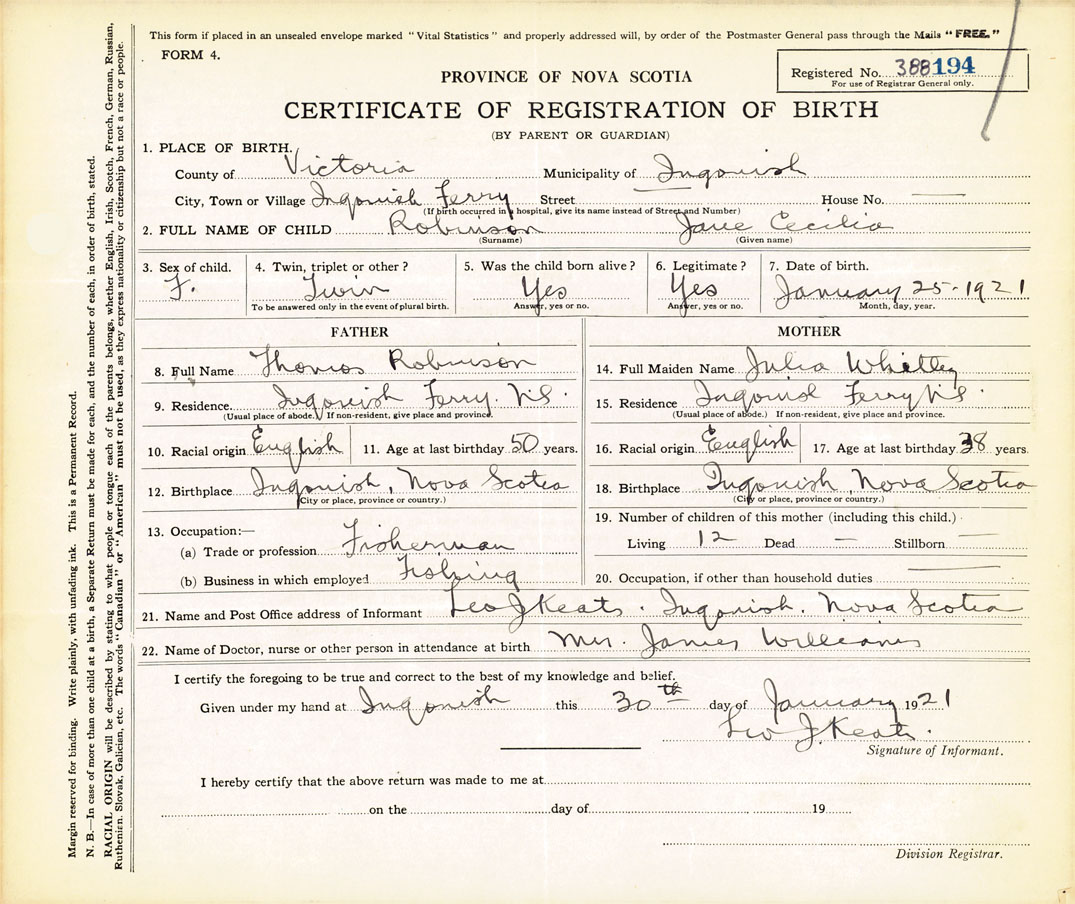 This form if placed in an unsealed envelope marked "Vital Statistics" and properly addressed will, by order of the Postmaster General pass through the Mails "FREE."
FORM 4.
Registered No. 388194
For use of Registrar General only.
PROVINCE OF NOVA SCOTIA
CERTIFICATE OF REGISTRATION OF BIRTH
(BY PARENT OR GUARDIAN)
1. PLACE OF BIRTH.
County of Victoria Municipality of Ingonish
City, Town or Village Ingonish Ferry Street House No. —
(If birth occurred in a hospital, give its name instead of Street and Number)
2. FULL NAME OF CHILD Robinson Jane Cecilia
(Surname) (Given name)
3. Sex of child. 4. Twin, triplet or other? 5. Was the child born alive? 6. Legitimate? 7. Date of birth.
F. Twin Yes Yes January 25-1921
To be answered only in the event of plural birth. Answer, yes or no. Answer, yes or no. Month, day, year.
FATHER
8. Full Name Thomas Robinson
9. Residence Ingonish Ferry N.S.
(Usual place of abode.) If non-resident, give place and province.
10. Racial origin English 11. Age at last birthday 50 years.
12. Birthplace Ingonish, Nova Scotia
(City or place, province or country.)
13. Occupation:—
(a) Trade or profession Fisherman
(b) Business in which employed Fishing
MOTHER
14. Full Maiden Name Julia Whitty
15. Residence Ingonish Ferry N.S.
(Usual place of abode.) If non-resident, give place and province.
16. Racial origin English 17. Age at last birthday 38 years.
18. Birthplace Ingonish, Nova Scotia
(City or place, province or country.)
19. Number of children of this mother (including this child.)
Living 12 Dead — Stillborn —
20. Occupation, if other than household duties —
21. Name and Post Office address of Informant Leo J Keats. Ingonish. Nova Scotia
22. Name of Doctor, nurse or other person in attendance at birth Mrs. James Williams
I certify the foregoing to be true and correct to the best of my knowledge and belief.
Given under my hand at Ingonish this 30th day of January 1921
Leo J. Keats.
Signature of Informant.
I hereby certify that the above return was made to me at
on the day of 19
Division Registrar.
Margin reserved for binding. Write plainly, with unfading ink. This is a Permanent Record.
N. B.—In case of more than one child at a birth, a Separate Return must be made for each, and the number of each, in order of birth, stated.
RACIAL ORIGIN will be described by stating to what people or tongue each of the parents belongs, whether English, Irish, Scotch, French, German, Russian,
Ruthenien, Slovak, Galician, etc. The words "Canadian" or "American" must not be used, as they express nationality or citizenship but not a race or people.